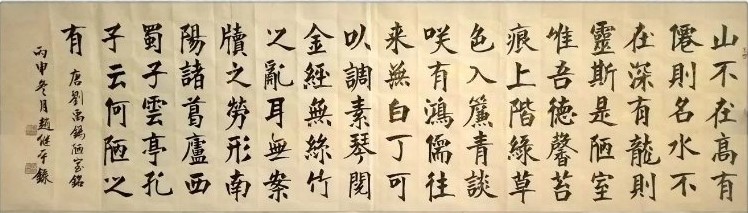 山不在高有
僊則名水不
在深有龍則
靈斯是陋室
惟吾德馨苔
痕上階綠草
色入簾青談
咲有鴻儒往
来無白丁可
㕥調素琴閱
金經無絲竹
之亂耳無案
牘之勞形南
陽諸葛廬西
蜀子雲亭孔
子云何陋之
有
唐劉禹錫陋室銘
丙申冬月趙继平錄